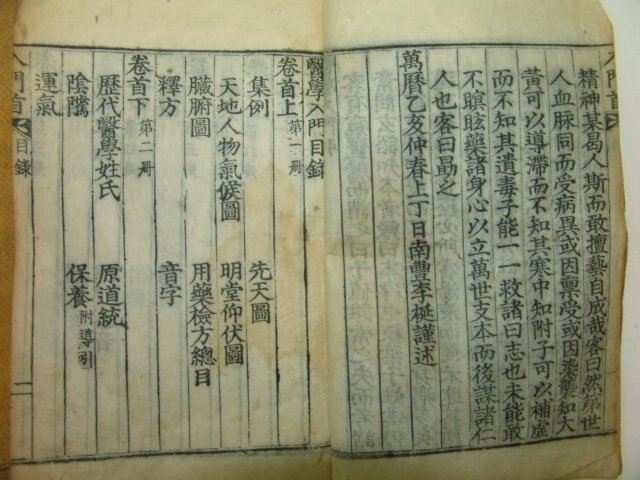 精神某曷人斯而敢擅藝自成哉客曰然第世
人血脉同而受病異或因稟受或因染襲知大
黃可以導滯而不知其寒中知附子可以補虛
而不知其遺毒子能一一救諸曰志也未能敢
不瞑眩藥諸身心以立萬世支本而後謀諸仁
人也客曰勗之
萬曆乙亥仲春上丁日南豐李梴謹述
醫學入門目錄
卷首上 第一冊
集例 先天圖
天地人物氣候圖 明堂仰伏圖
臟腑圖 用藥檢方總目
釋方 音字
卷首下 第二冊
歷代醫學姓氏 原道統
陰隲 保養 附導引
運氣
入門首 目錄 二